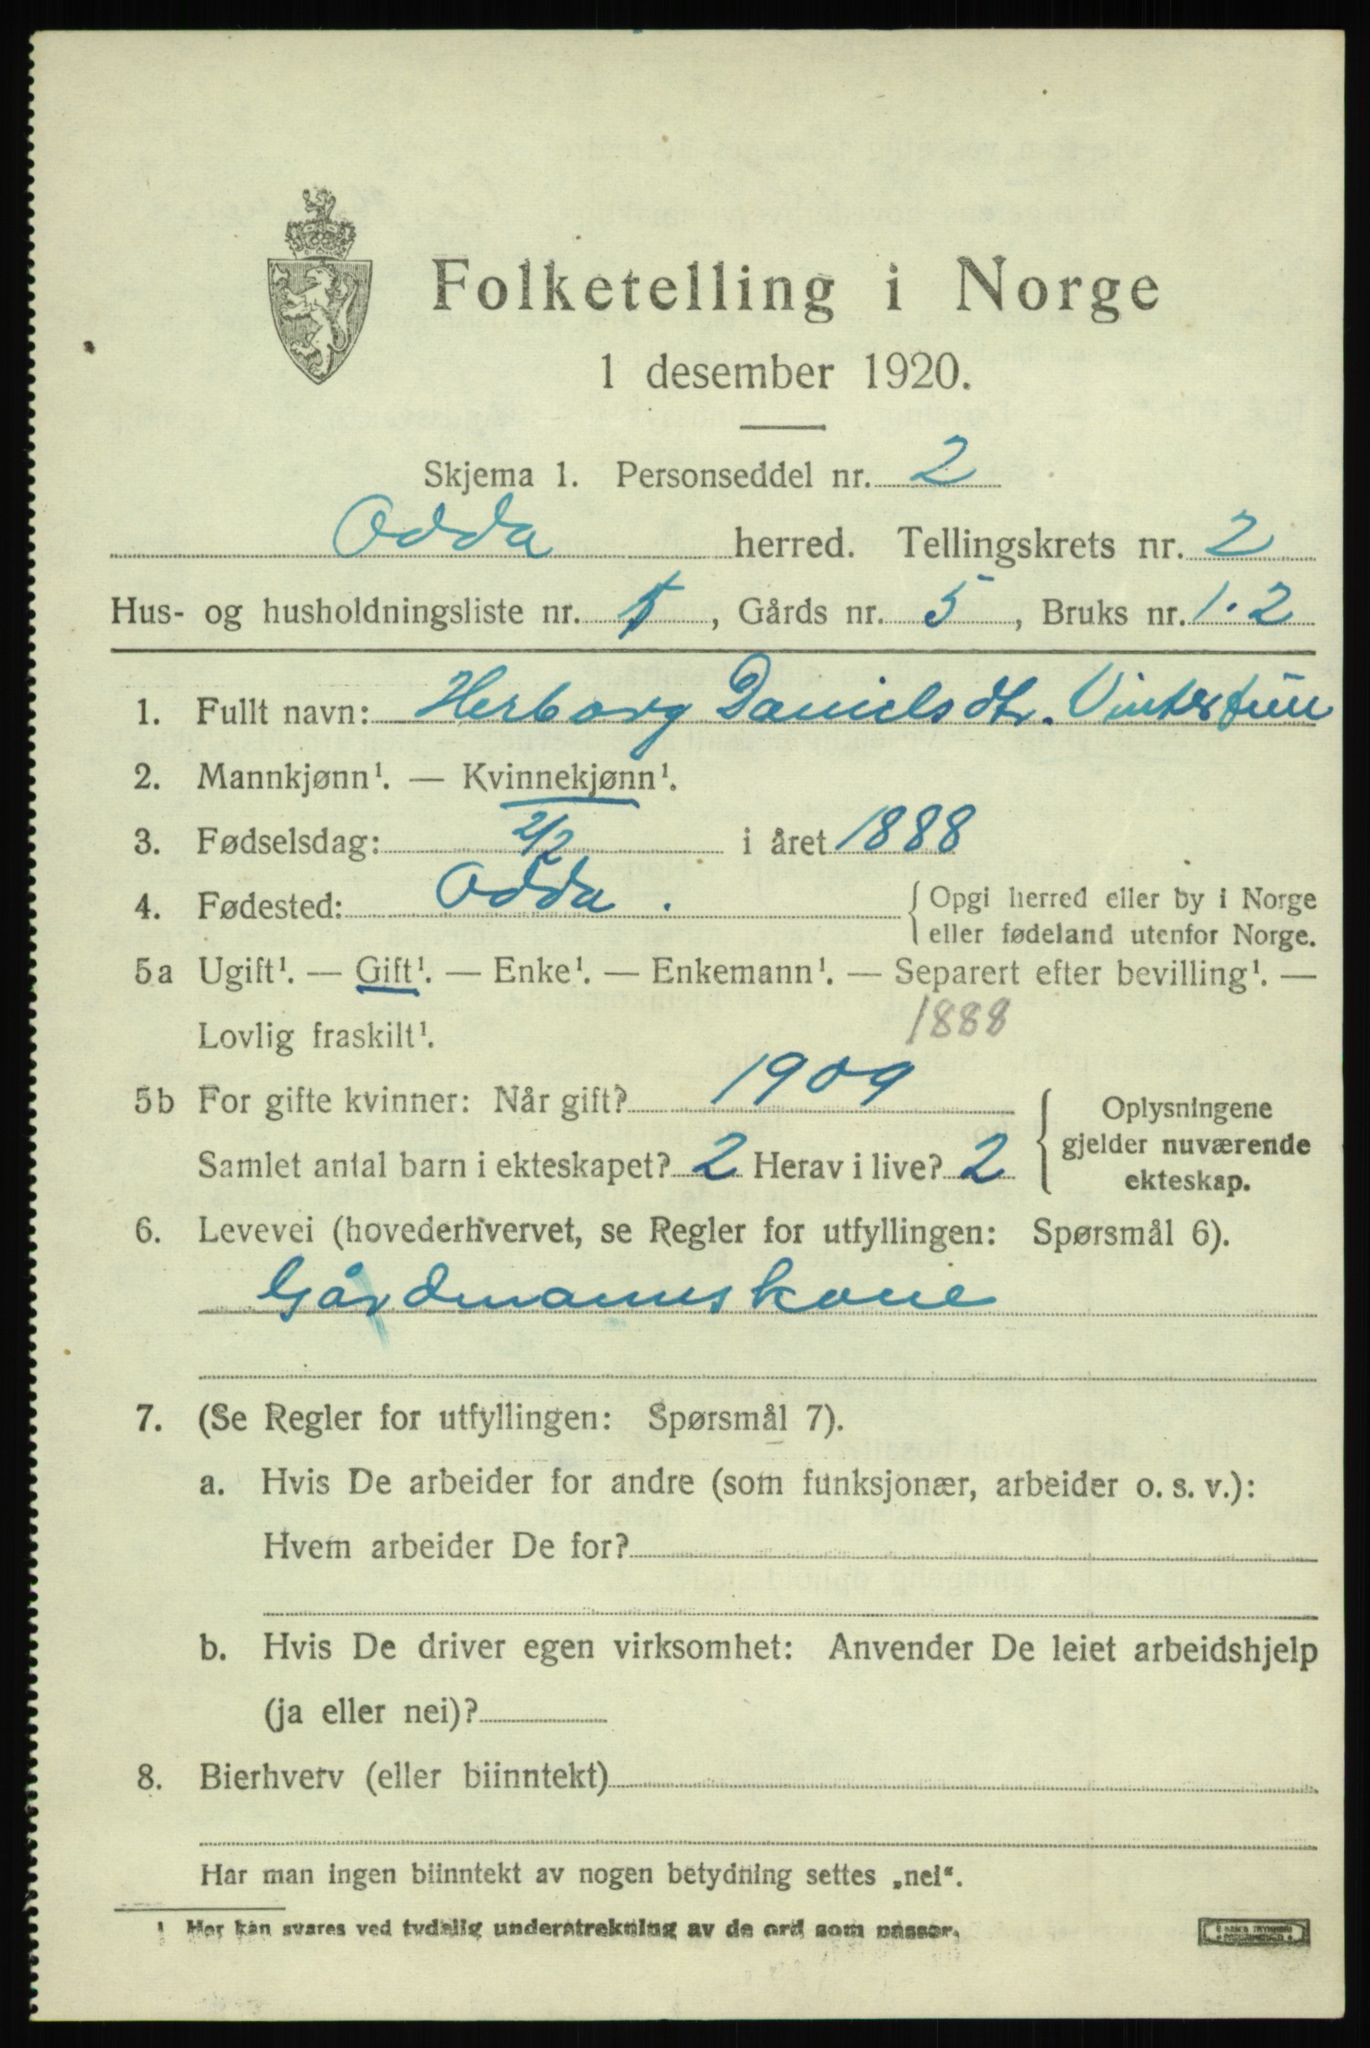 Folketelling i Norge
1 desember 1920.
Skjema 1. Personseddel nr. 2
Odda herred. Tellingskrets nr. 2
Hus- og husholdningsliste nr. 1, Gårds nr. 5, Bruks nr. 1.2
1. Fullt navn: Herborg Danielsdtr. Vintertun
2. Mannkjønn¹. — Kvinnekjønn¹.
3. Fødselsdag: 2/2 i året 1888
4. Fødested: Odda. { Opgi herred eller by i Norge
eller fødeland utenfor Norge.
5a Ugift¹. — Gift¹. — Enke¹. — Enkemann¹. — Separert efter bevilling¹. —
Lovlig fraskilt¹. 1888
5b For gifte kvinner: Når gift? 1909
Samlet antal barn i ekteskapet? 2 Herav i live? 2
{ Oplysningene
gjelder nuværende
ekteskap.
6. Levevei (hovederhvervet, se Regler for utfyllingen: Spørsmål 6).
Gårdmannskone
7. (Se Regler for utfyllingen: Spørsmål 7).
a. Hvis De arbeider for andre (som funksjonær, arbeider o. s. v.):
Hvem arbeider De for?
b. Hvis De driver egen virksomhet: Anvender De leiet arbeidshjelp
(ja eller nei)?
8. Bierhverv (eller biinntekt)
Har man ingen biinntekt av nogen betydning settes „nei“.
¹ Her kan svares ved tydelig understrekning av de ord som passer.